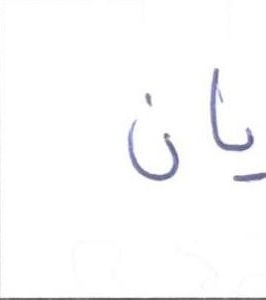 يان